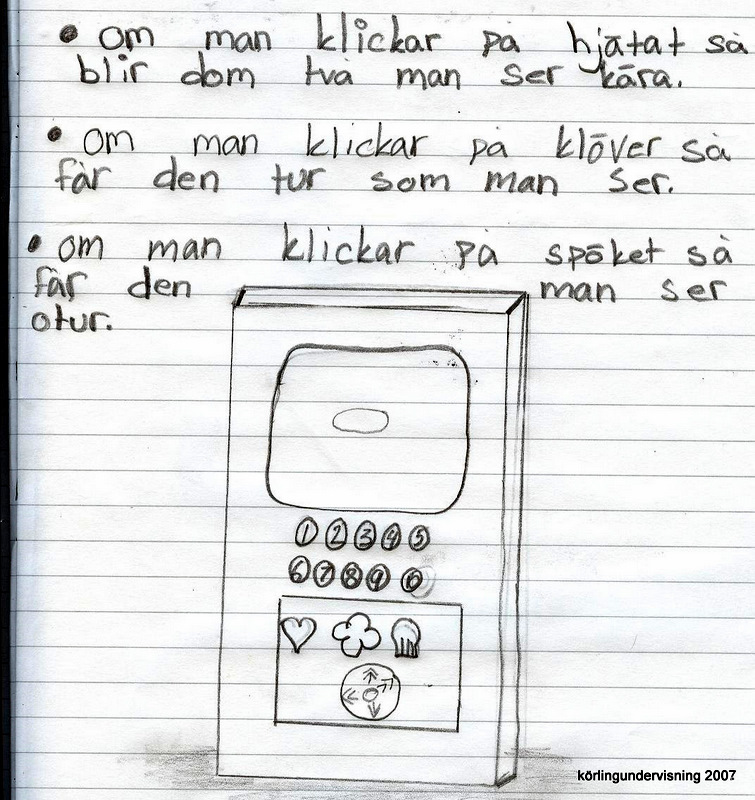 • om man klickar på hjätat så
blir dom två man ser kära.
• om man klickar på klöver så
får den tur som man ser.
• om man klickar på spöket så
får den man ser
otur.
1 2 3 4 5
6 7 8 9 10
körlingundervisning 2007